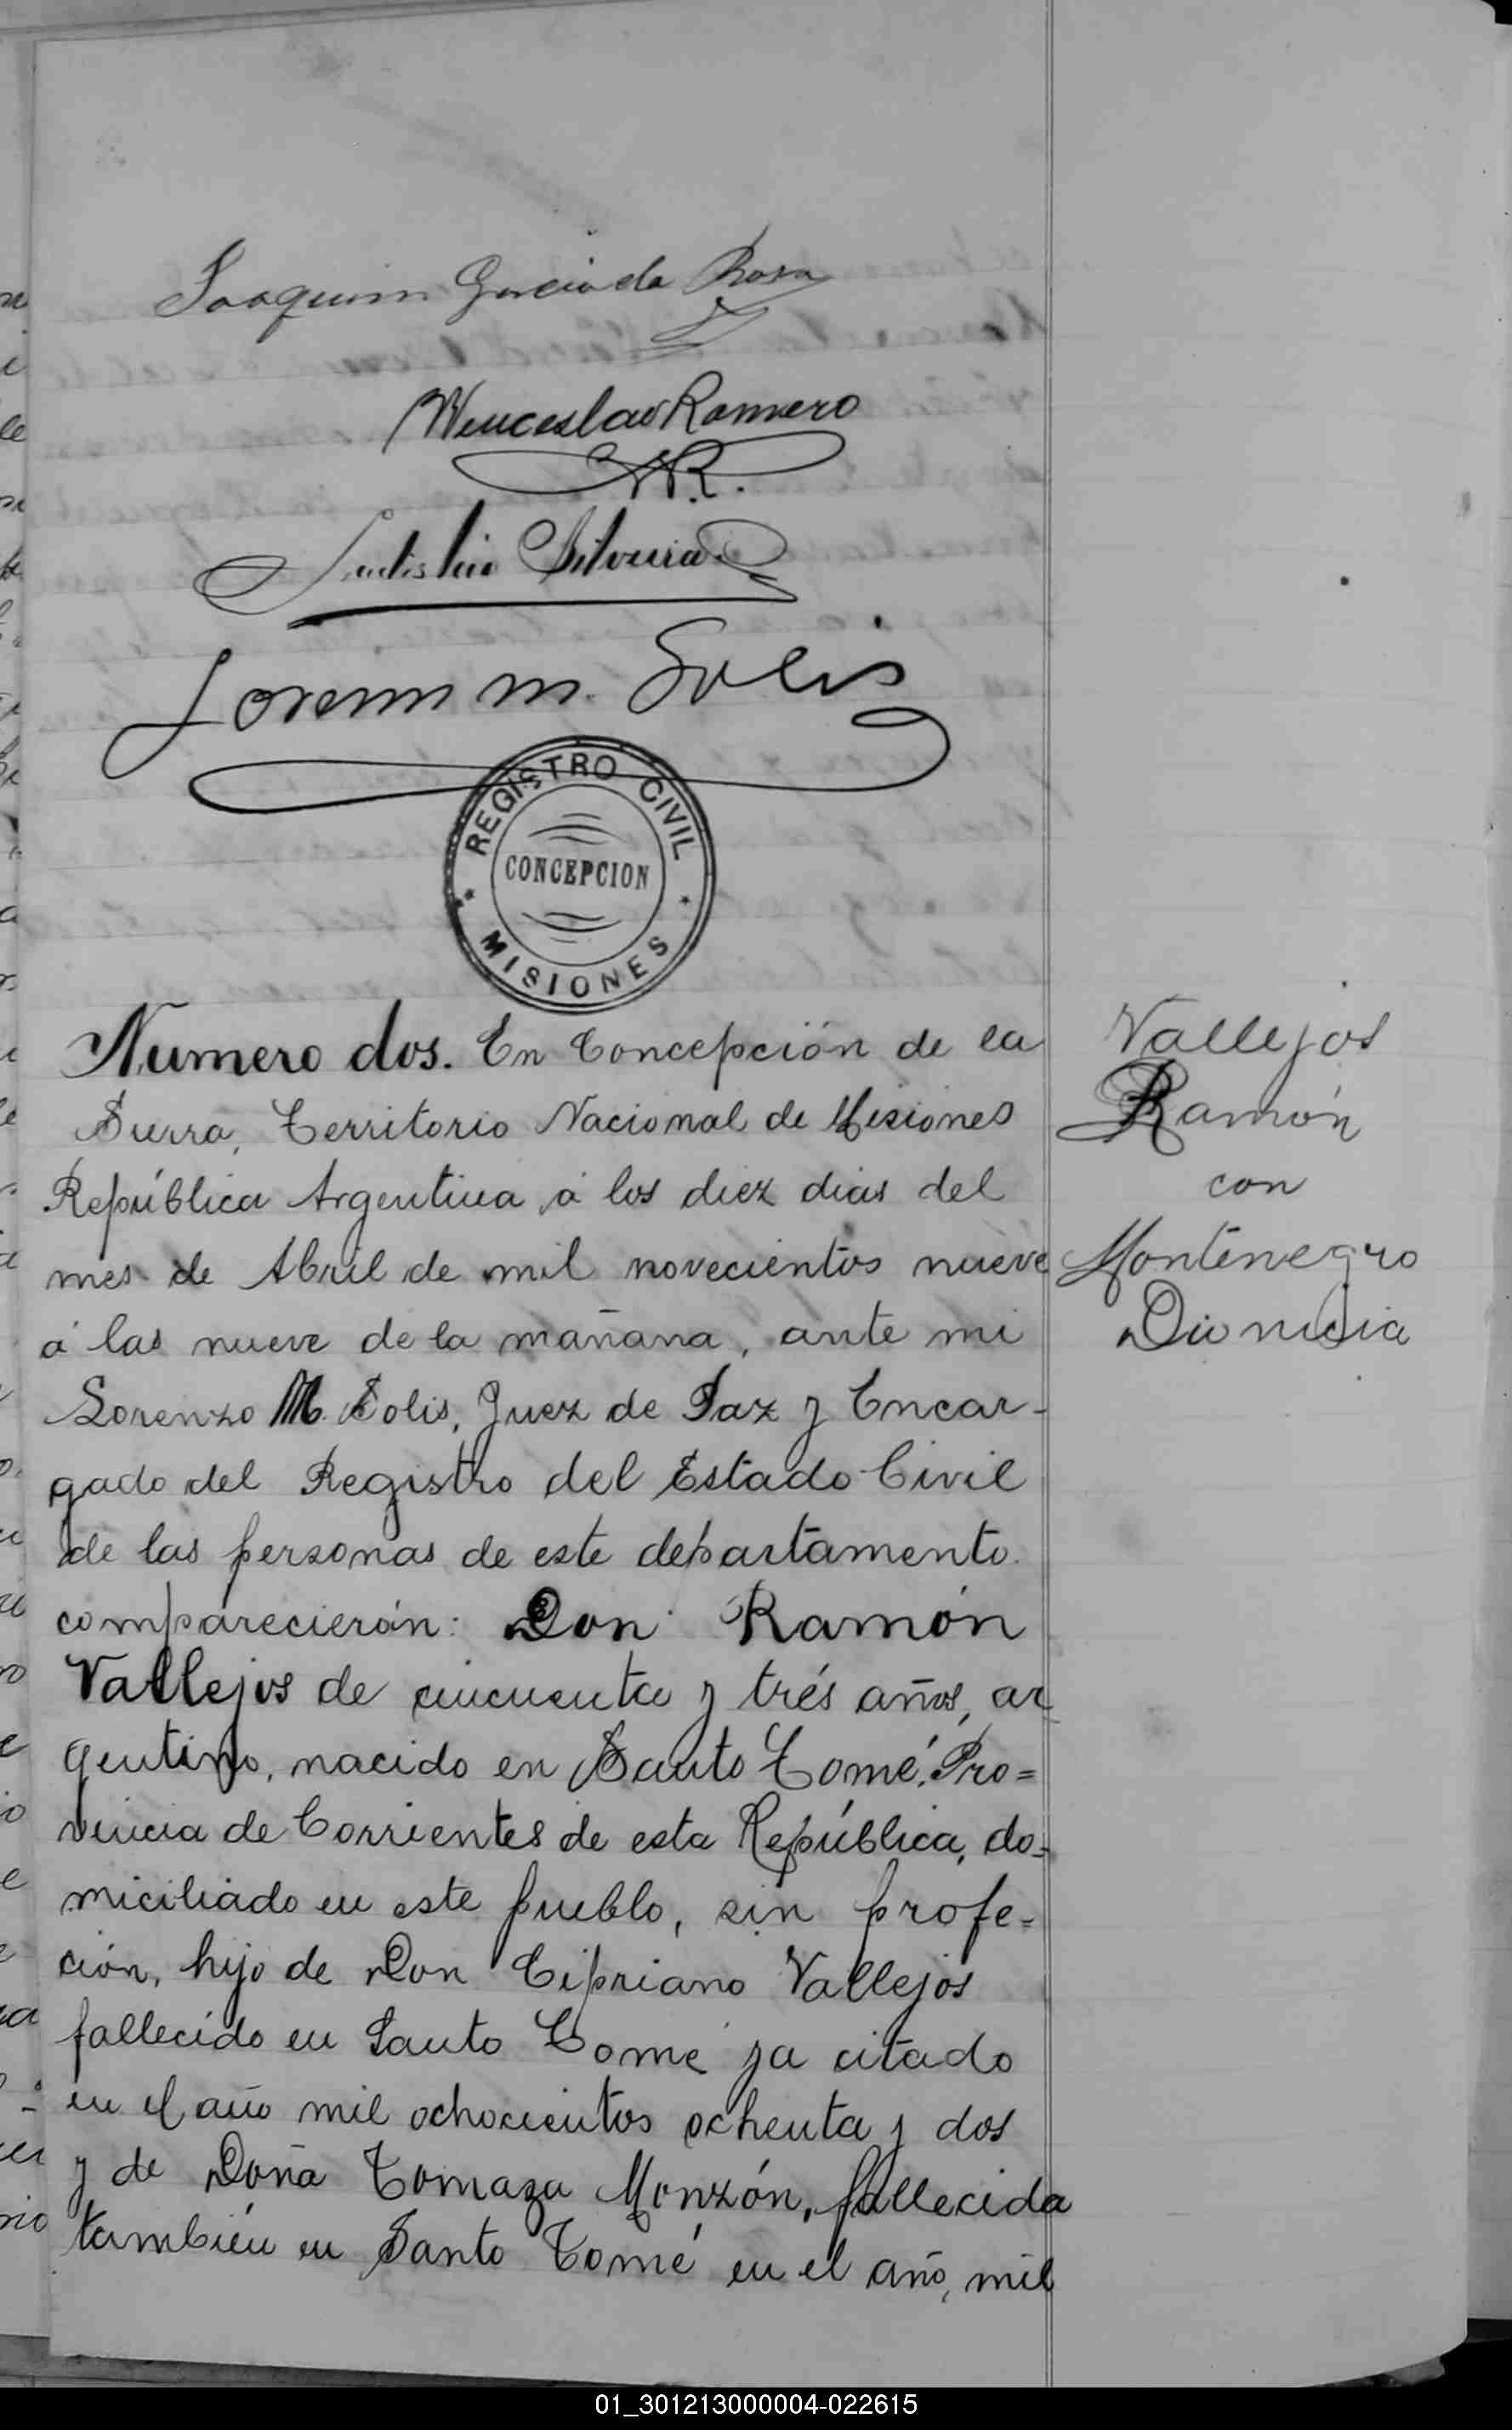 Joaquim Garcia da Rosa
Wenceslao Romero
WR.
Silveira
Lorenzo M. Solis
REGISTRO CIVIL
CONCEPCION
MISIONES
Numero dos. En Concepción de la
Sierra, Territorio Nacional de Misiones
República Argentina á los diez dias del
mes de Abril de mil novecientos nueve
á las nueve de la mañana, ante mi
Lorenzo M. Solis, Juez de Paz y Encar-
gado del Registro del Estado Civil
de las personas de este departamento.
comparecierón: Don Ramón
Vallejos de cincuenta y trés años, ar
gentino, nacido en Santo Tomé, Pro=
vincia de Corrientes de esta República, do=
miciliado en este pueblo, sin profe=
ción, hijo de Don Cipriano Vallejos
fallecido en Santo Tomé ya citado
en el año mil ochocientos ochenta y dos
y de Doña Tomaza Monzón, fallecida
también en Santo Tomé en el año, mil
Vallejos
Ramón
con
Montenegro
Dionisia
01_301213000004-022615